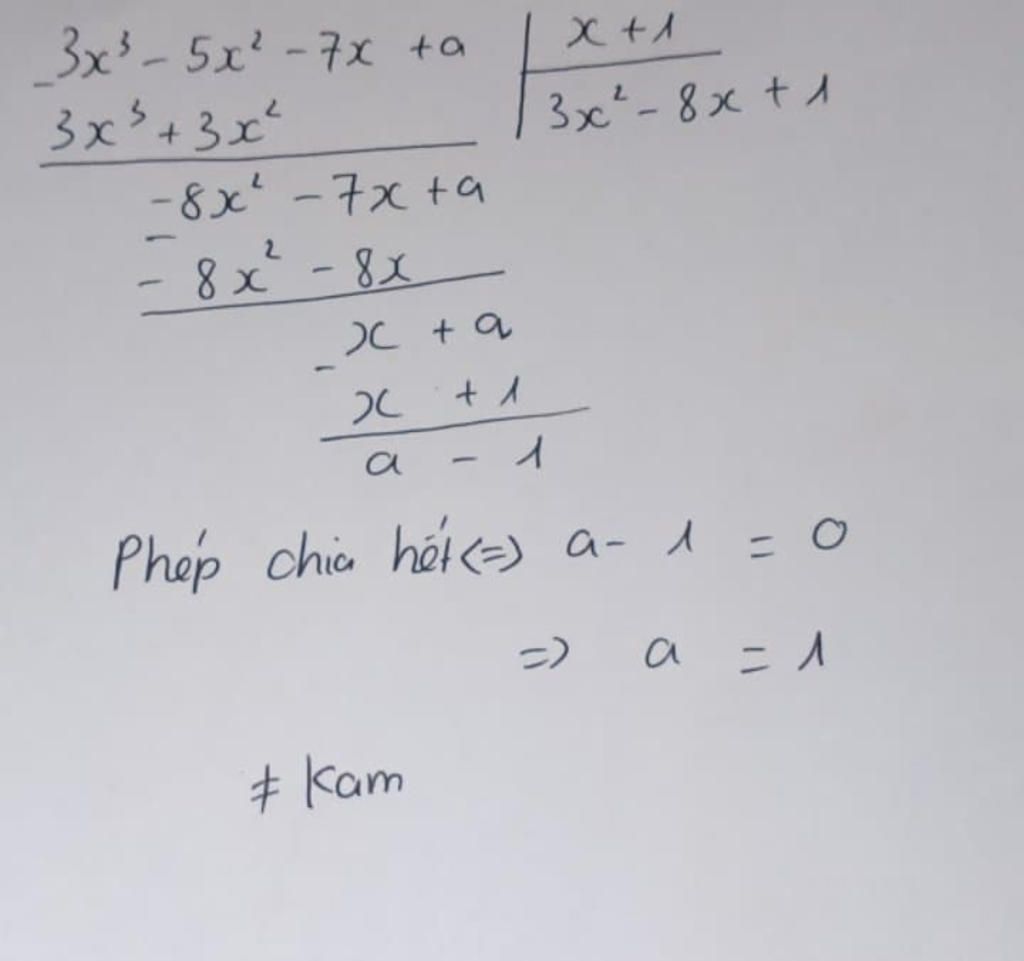 3x³ - 5x² - 7x + a | x + 1
- 3x³ + 3x² | 3x² - 8x + 1
-8x² - 7x + a
-
- 8x² - 8x
x + a
-
x + 1
a - 1
Phép chia hết <=> a - 1 = 0
=> a = 1
≠ Kam